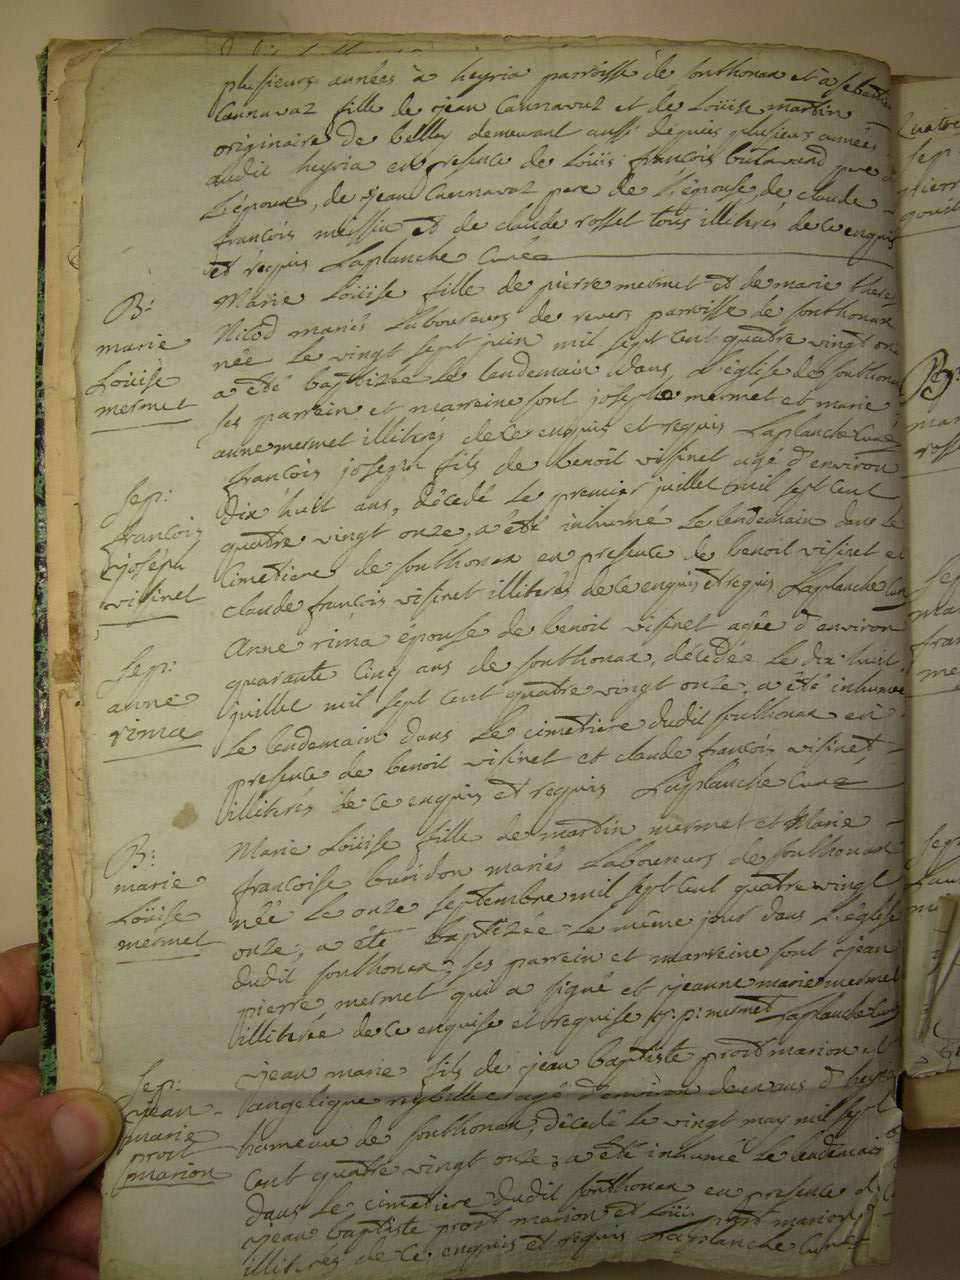 plusieurs années à heyria parroisse de sonthonax et à sebastien
Cannavaz fille de jean Cannavaz et de Loüise martin
originaire de belley demeurant aussi dépuis plusieurs années
audit heyria en presence de Loüis françois pere de
L'épouse, de jean Cannavaz pere de L'épouse, de claude
françois missiu et de claude rosset tous illiterés de ce enquis
et requis Laplanche Curé
B:
marie
Loüise
mermet
Marie Loüise fille de pierre mermet et de marie there
Nicod mariés Laboureurs de revers parroisse de sonthonax
née Le vingt sept juin mil sept cent quatre vingt on
a été baptizée Le lendemain dans L'église de sonthona
ses parrein et marreine sont joseph mermet et marie
anne mermet illiterés de ce enquis et requis Laplanche Curé
Sep:
françois
joséph
visinet
françois joseph fils de benoit vissinet agé d'environ
dix huit ans, décédé Le premier juillet mil sept cent
quatre vingt onze, a été inhumé Le lendemain dans Le
Cimetiere de sonthonax en presence de benoit visinet et
claude françois visinet illiterés de ce enquis et requis Laplanche Curé
Sep:
anne
rima
Anne rima épouse de benoit visinet agée d'environ
quarante cinq ans de sonthonax, décédée Le dix huit
juillet mil sept cent quatre vingt onze, a été inhumée
Le lendemain dans Le cimetiere dudit sonthonax en
presence de benoit visinet et claude françois visinet
illiterés de ce enquis et requis Laplanche Curé
B:
marie
Loüise
mermet
Marie Loüise fille de martin mermet et Marie
françoise bouridon mariés Laboureurs de sonthonax
née Le onze septembre mil sept cent quatre vingt
onze, a été baptizée Le même jour dans L'église
dudit sonthonax, ses parrein et marreine sont jean
pierre mermet qui a signé et jeanne marie mermet
illiterée de ce enquise et requise j: p: mermet Laplanche Curé
Sep:
jean
marie
proit
marion
jean marie fils de jean baptiste proit marion et
angelique reybelle agé d'environ deux ans d'heyria
hameau de sonthonax, décédé Le vingt may mil sept
cent quatre vingt onze, a été inhumé Le lendemain
dans Le cimetiere dudit sonthonax en presence de
jean baptiste proit marion et Loüis proit marion
illiterés de ce enquis et requis Laplanche Curé